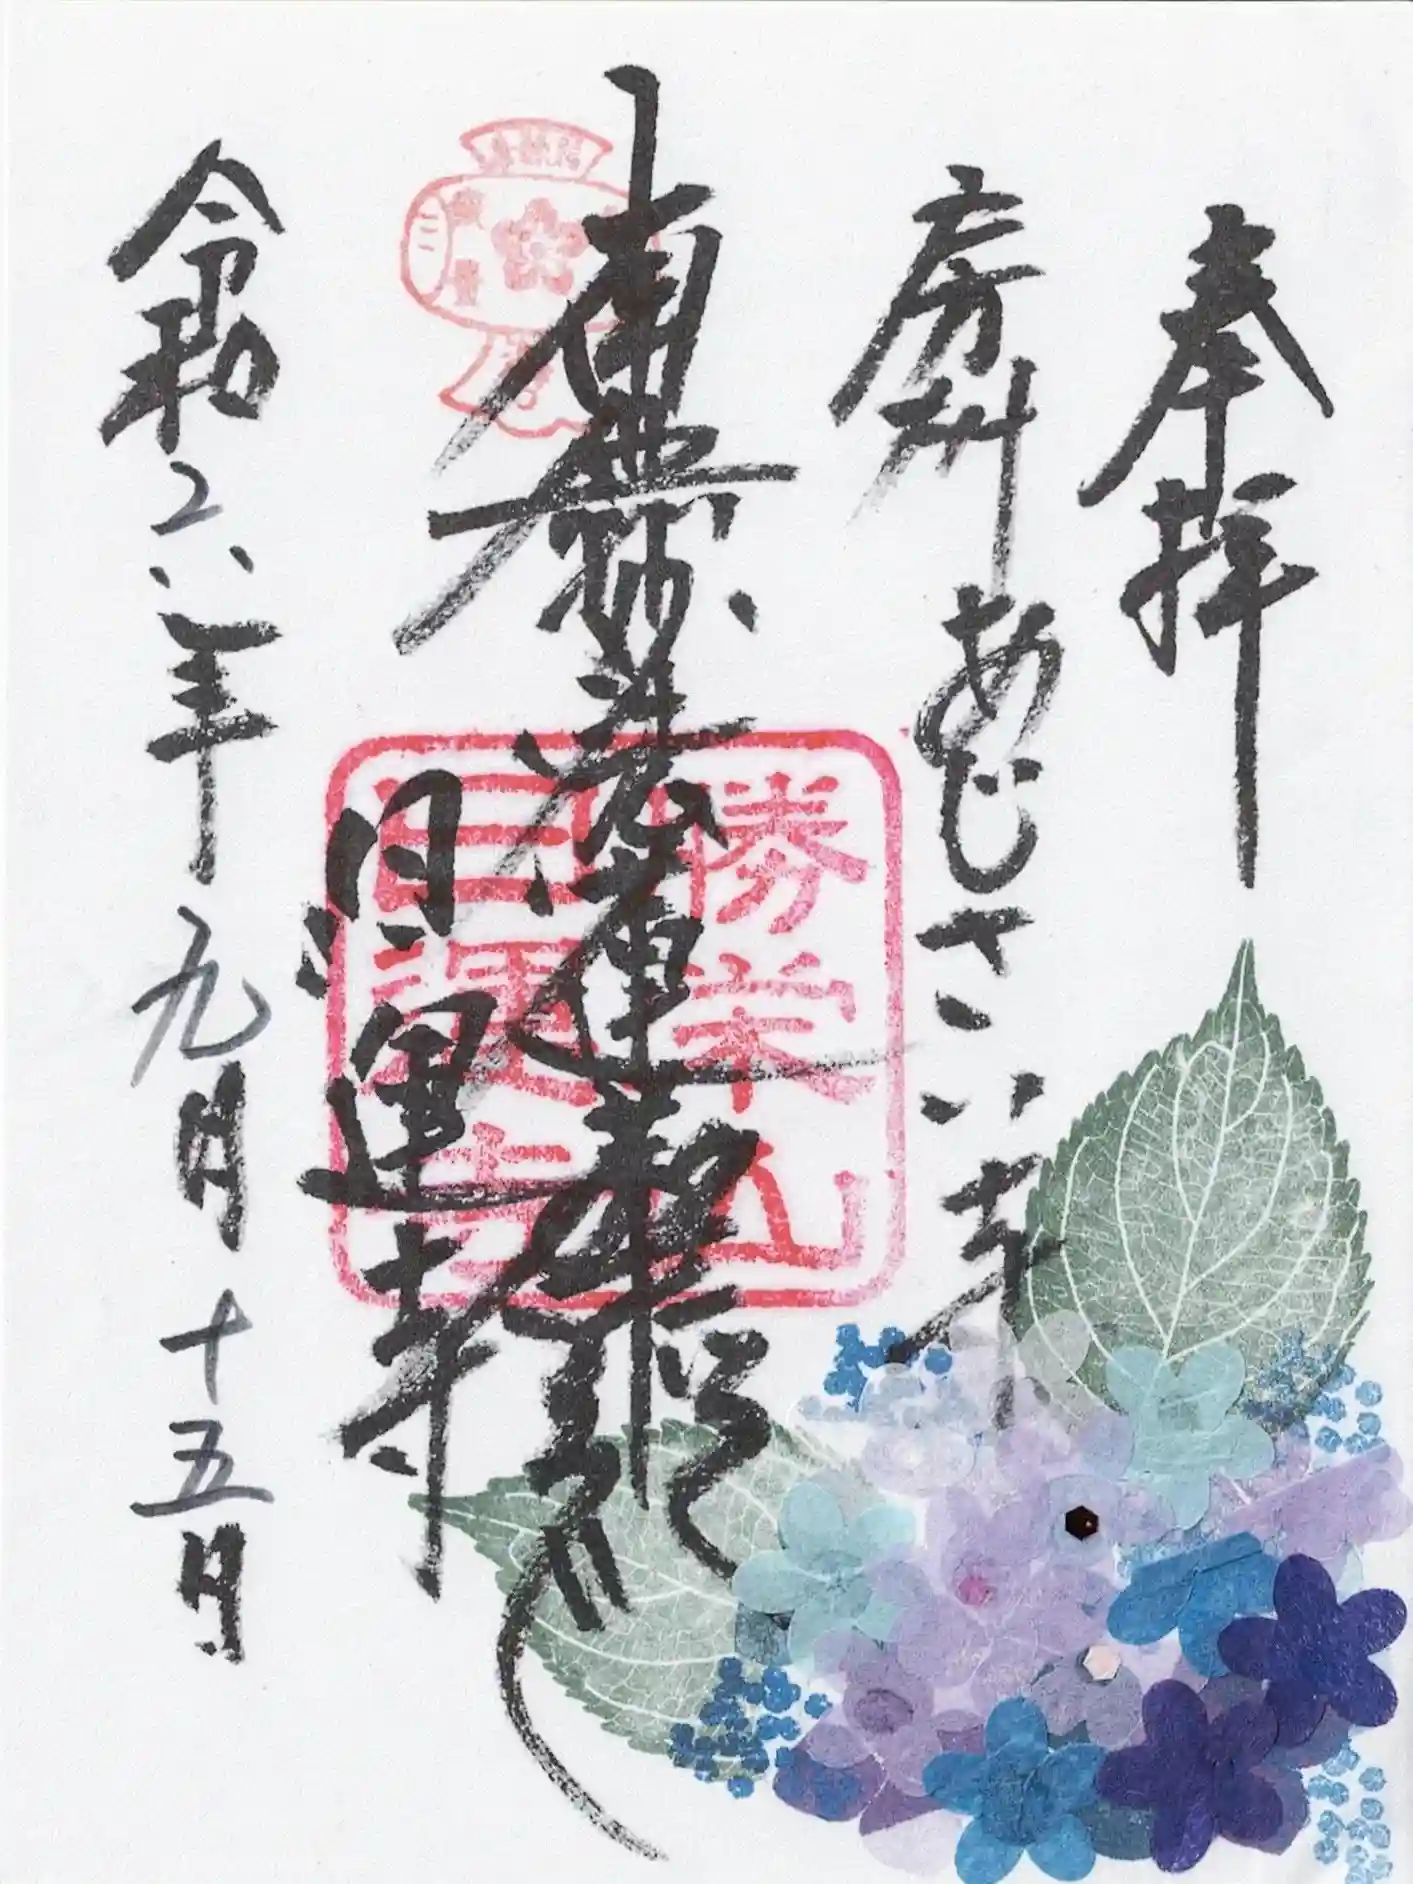 奉拝
房州あじさい寺
南無妙法蓮華経
日運寺
勝栄山
日運寺
令和二年九月十五日